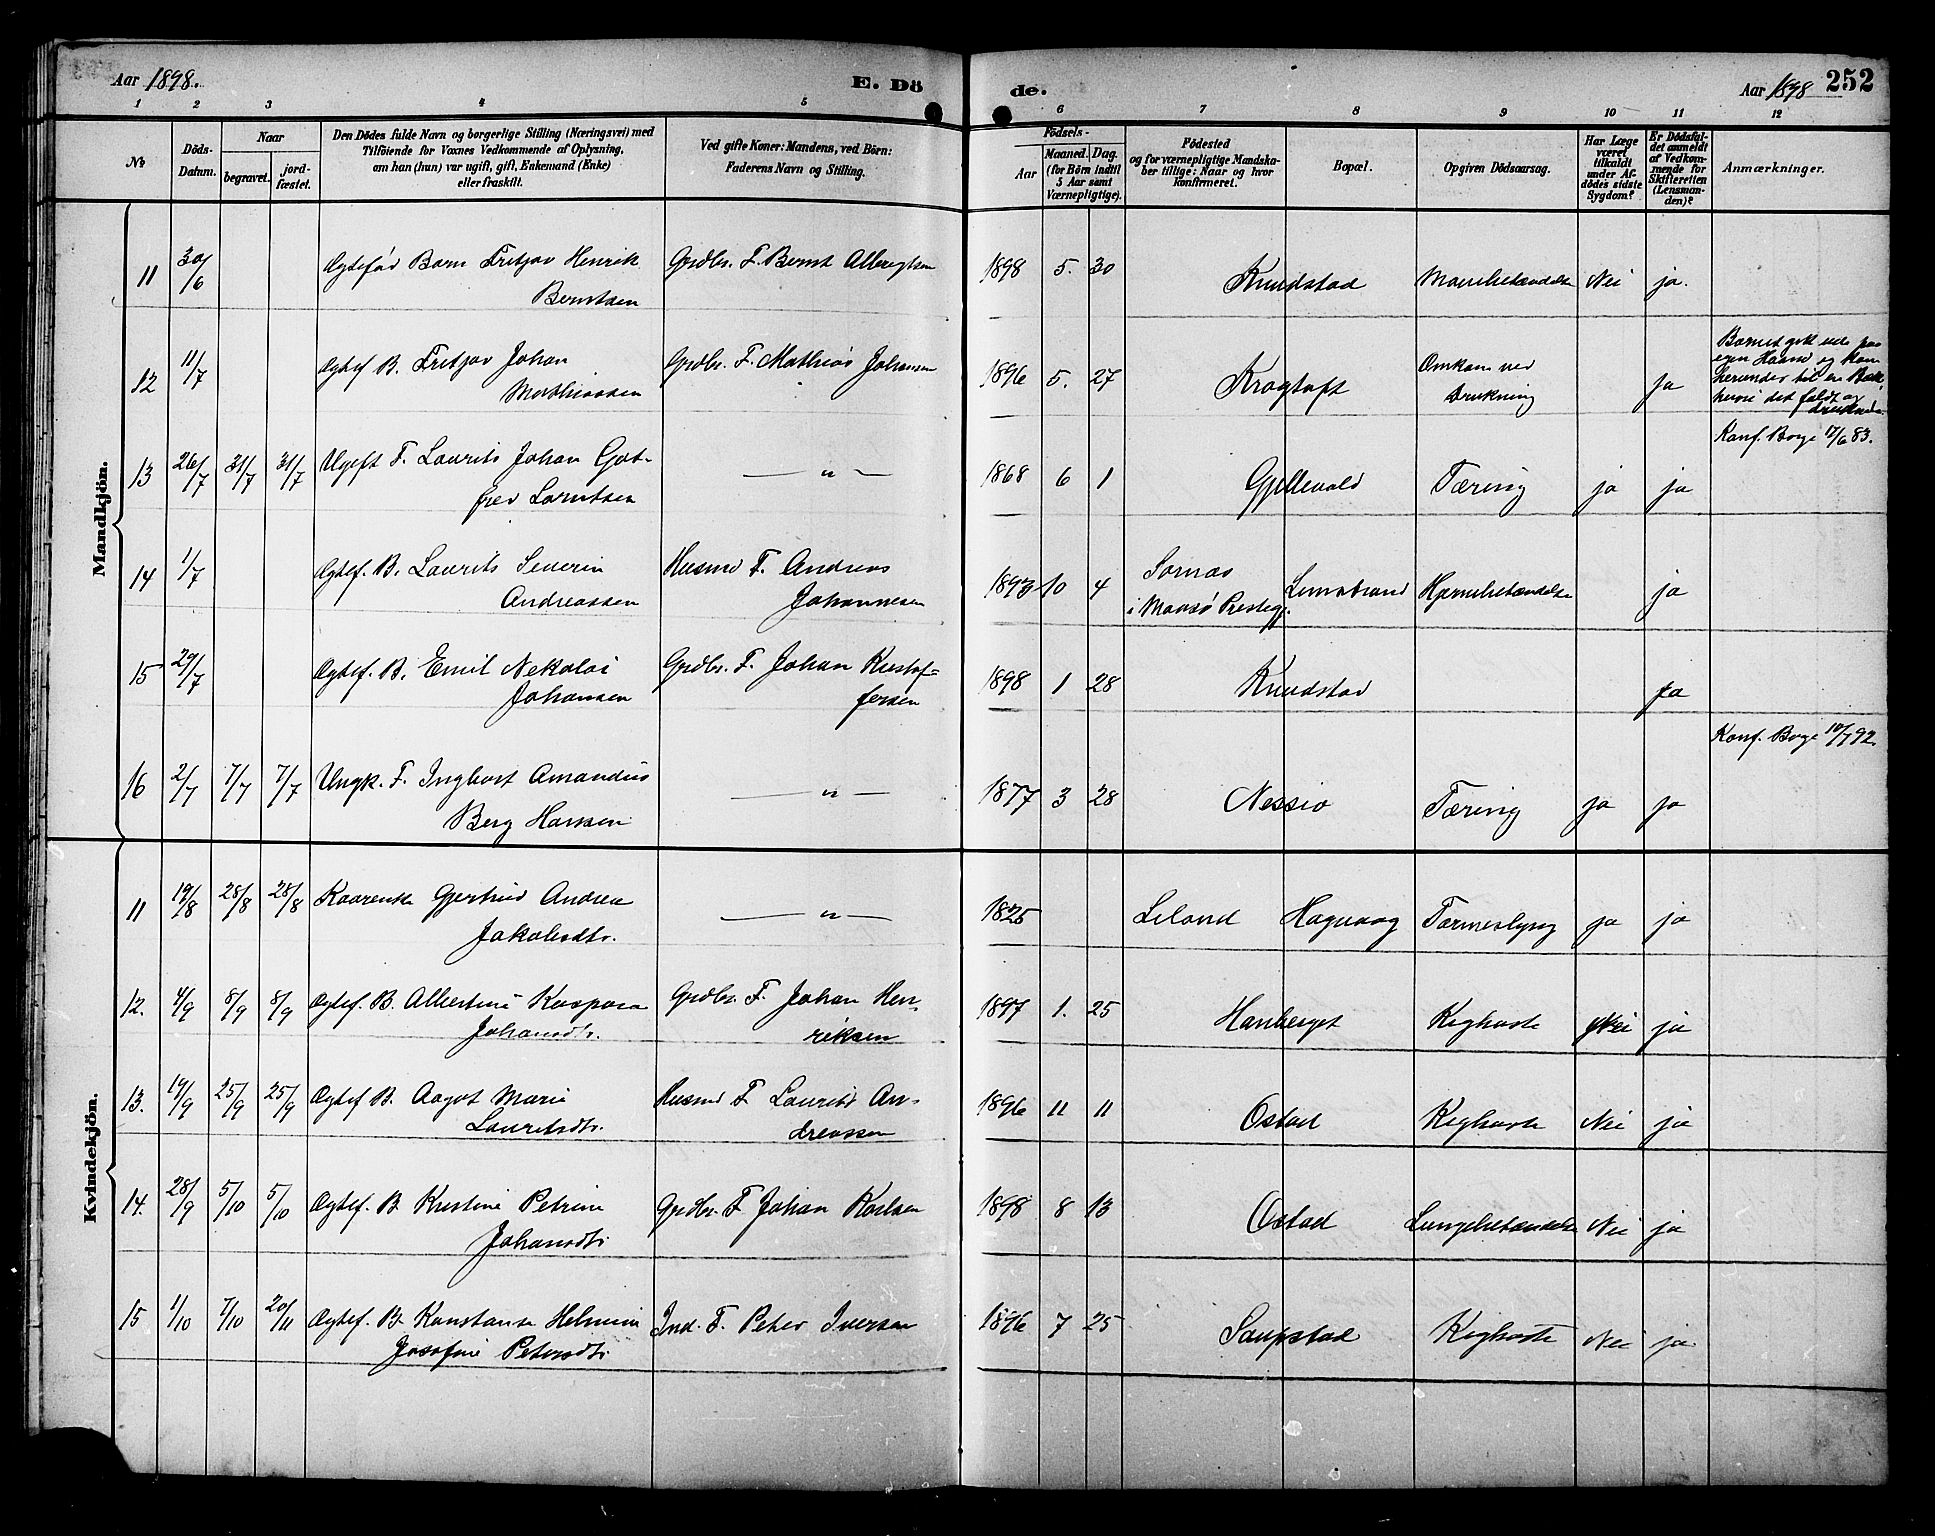 Aar 1898.
E. Dö
de.
Aar 1898
252
1 2 3 4 5 6 7 8 9 10 11 12
No
Döds-Datum.
Naar
begravet.
jord-fæstet.
Den Dödes fulde Navn og borgerlige Stilling (Næringsvei) med
Tilföiende for Voxnes Vedkommende af Oplysning,
om han (hun) var ugift, gift, Enkemand (Enke)
eller fraskilt.
Ved gifte Koner: Mandens, ved Börn:
Faderens Navn og Stilling.
Födsels-
Aar
Maaned. Dag.
(for Börn indtil
5 Aar samt
Værnepligtige).
Födested
og for værnepligtige Mandska-
ber tillige: Naar og hvor
konfirmeret.
Bopæl.
Opgiven Dödsaarsag.
Har Læge
været
tilkaldt
under Af-
dödes sidste
Sygdom?
Er Dödsfal-
det anmeldt
af Vedkom-
mende for
Skifteretten
(Lensman-
den)?
Anmærkninger.
Mandkjön.
11 30/6 Ægtefød Barn Fritjov Henrik
Berntsen
Grdbr. F. Bernt Albrigtsen
1898 5. 30 Knudstad Mavebetændelse Nei ja.
12 11/7 Ægtef B. Fritjov Johan
Mathiassen
Grdbr. F. Mathias Johansen
1896 5. 27 Kragtoft Omkom ved
Drukning
ja
Barnet gik ude paa
egen Haand og kom
herunder til en Bæk,
hvori det faldt og
druknede
13 26/7 31/7 31/7 Ugift F. Laurits Johan Got-
fred Lorntsen
— " —
1868 6 1 Gjellevold Tæring ja ja
Konf. Borge 17/6 83.
14 1/7 Ægtef. B. Laurits Severin
Andreassen
Husmd F. Andreas
Johannesen
1893 10 4 Sornæs
i Maasø Prestegj.
Hjernebetændelse ja
15 29/7 Ægtef. B. Emil Nekolai
Johansen
Grdbr. F. Johan Kristof-
fersen
1898 1 28 Knudstad ja
16 2/7 7/7 7/7 Ungk. F. Ingbort Amandus
Berg Hanssen
— " —
1877 3 28 Nessie Tæring ja ja
Konf. Borge 10/7 92.
Kvindekjön.
11 19/8 28/8 28/8 Kaarenke Gjertrud Andrea
Jakobsdtr.
— " —
1825 Leland Hagvaag ja ja
12. 4/9 8/9 8/9 Ægtef. B. Albertine Kaspara
Johansdtr.
Grdbr. F. Johan Hen-
riksen
1897 1. 25 Hanberget Kighoste Nei ja
13. 19/9 25/9 25/9 Ægtef B. Aagot Marie
Lauritsdtr.
Husmd F Laurits An-
dreassen
1896 11 11 Ostad Kighoste Nei ja
14. 28/9 5/10 5/10 Ægtef. B Kristine Petrine
Johansdtr
Grdbr. F Johan Karlsen
1898 8 13 Ostad Lungebetændelse Nei ja
15 1/10 7/10 20/11 Ægtef. B. Konstanse Helmine
Josefine Petersdtr
Ind. F. Peter Iversen
1896 7 25 Saupstad Kighoste Nei ja